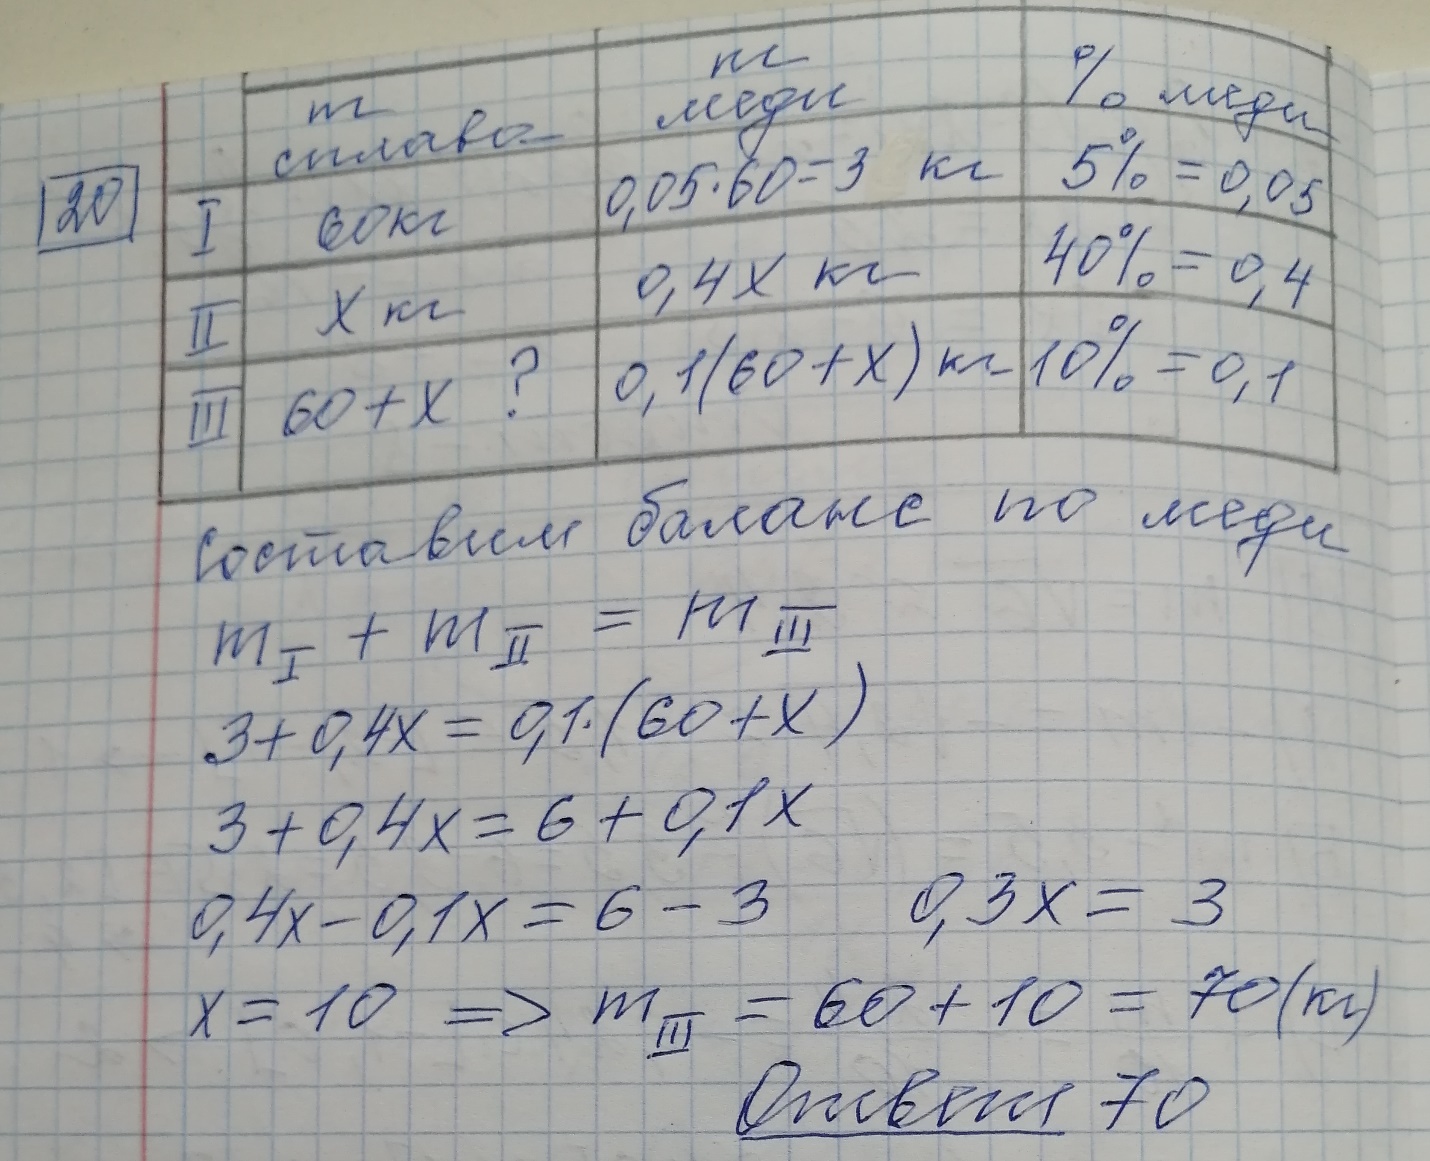 m сплава кг меди % меди
20
I 60кг 0,05·60=3 кг 5% = 0,05
II x кг 0,4x кг 40% = 0,4
III 60+x ? 0,1(60+x) кг 10% = 0,1
Составим баланс по меди
m I + m II = m III
3+0,4x = 0,1·(60+x)
3+0,4x = 6+0,1x
0,4x-0,1x = 6-3 0,3x = 3
x = 10 => m III = 60+10 = 70(кг)
Ответ 70